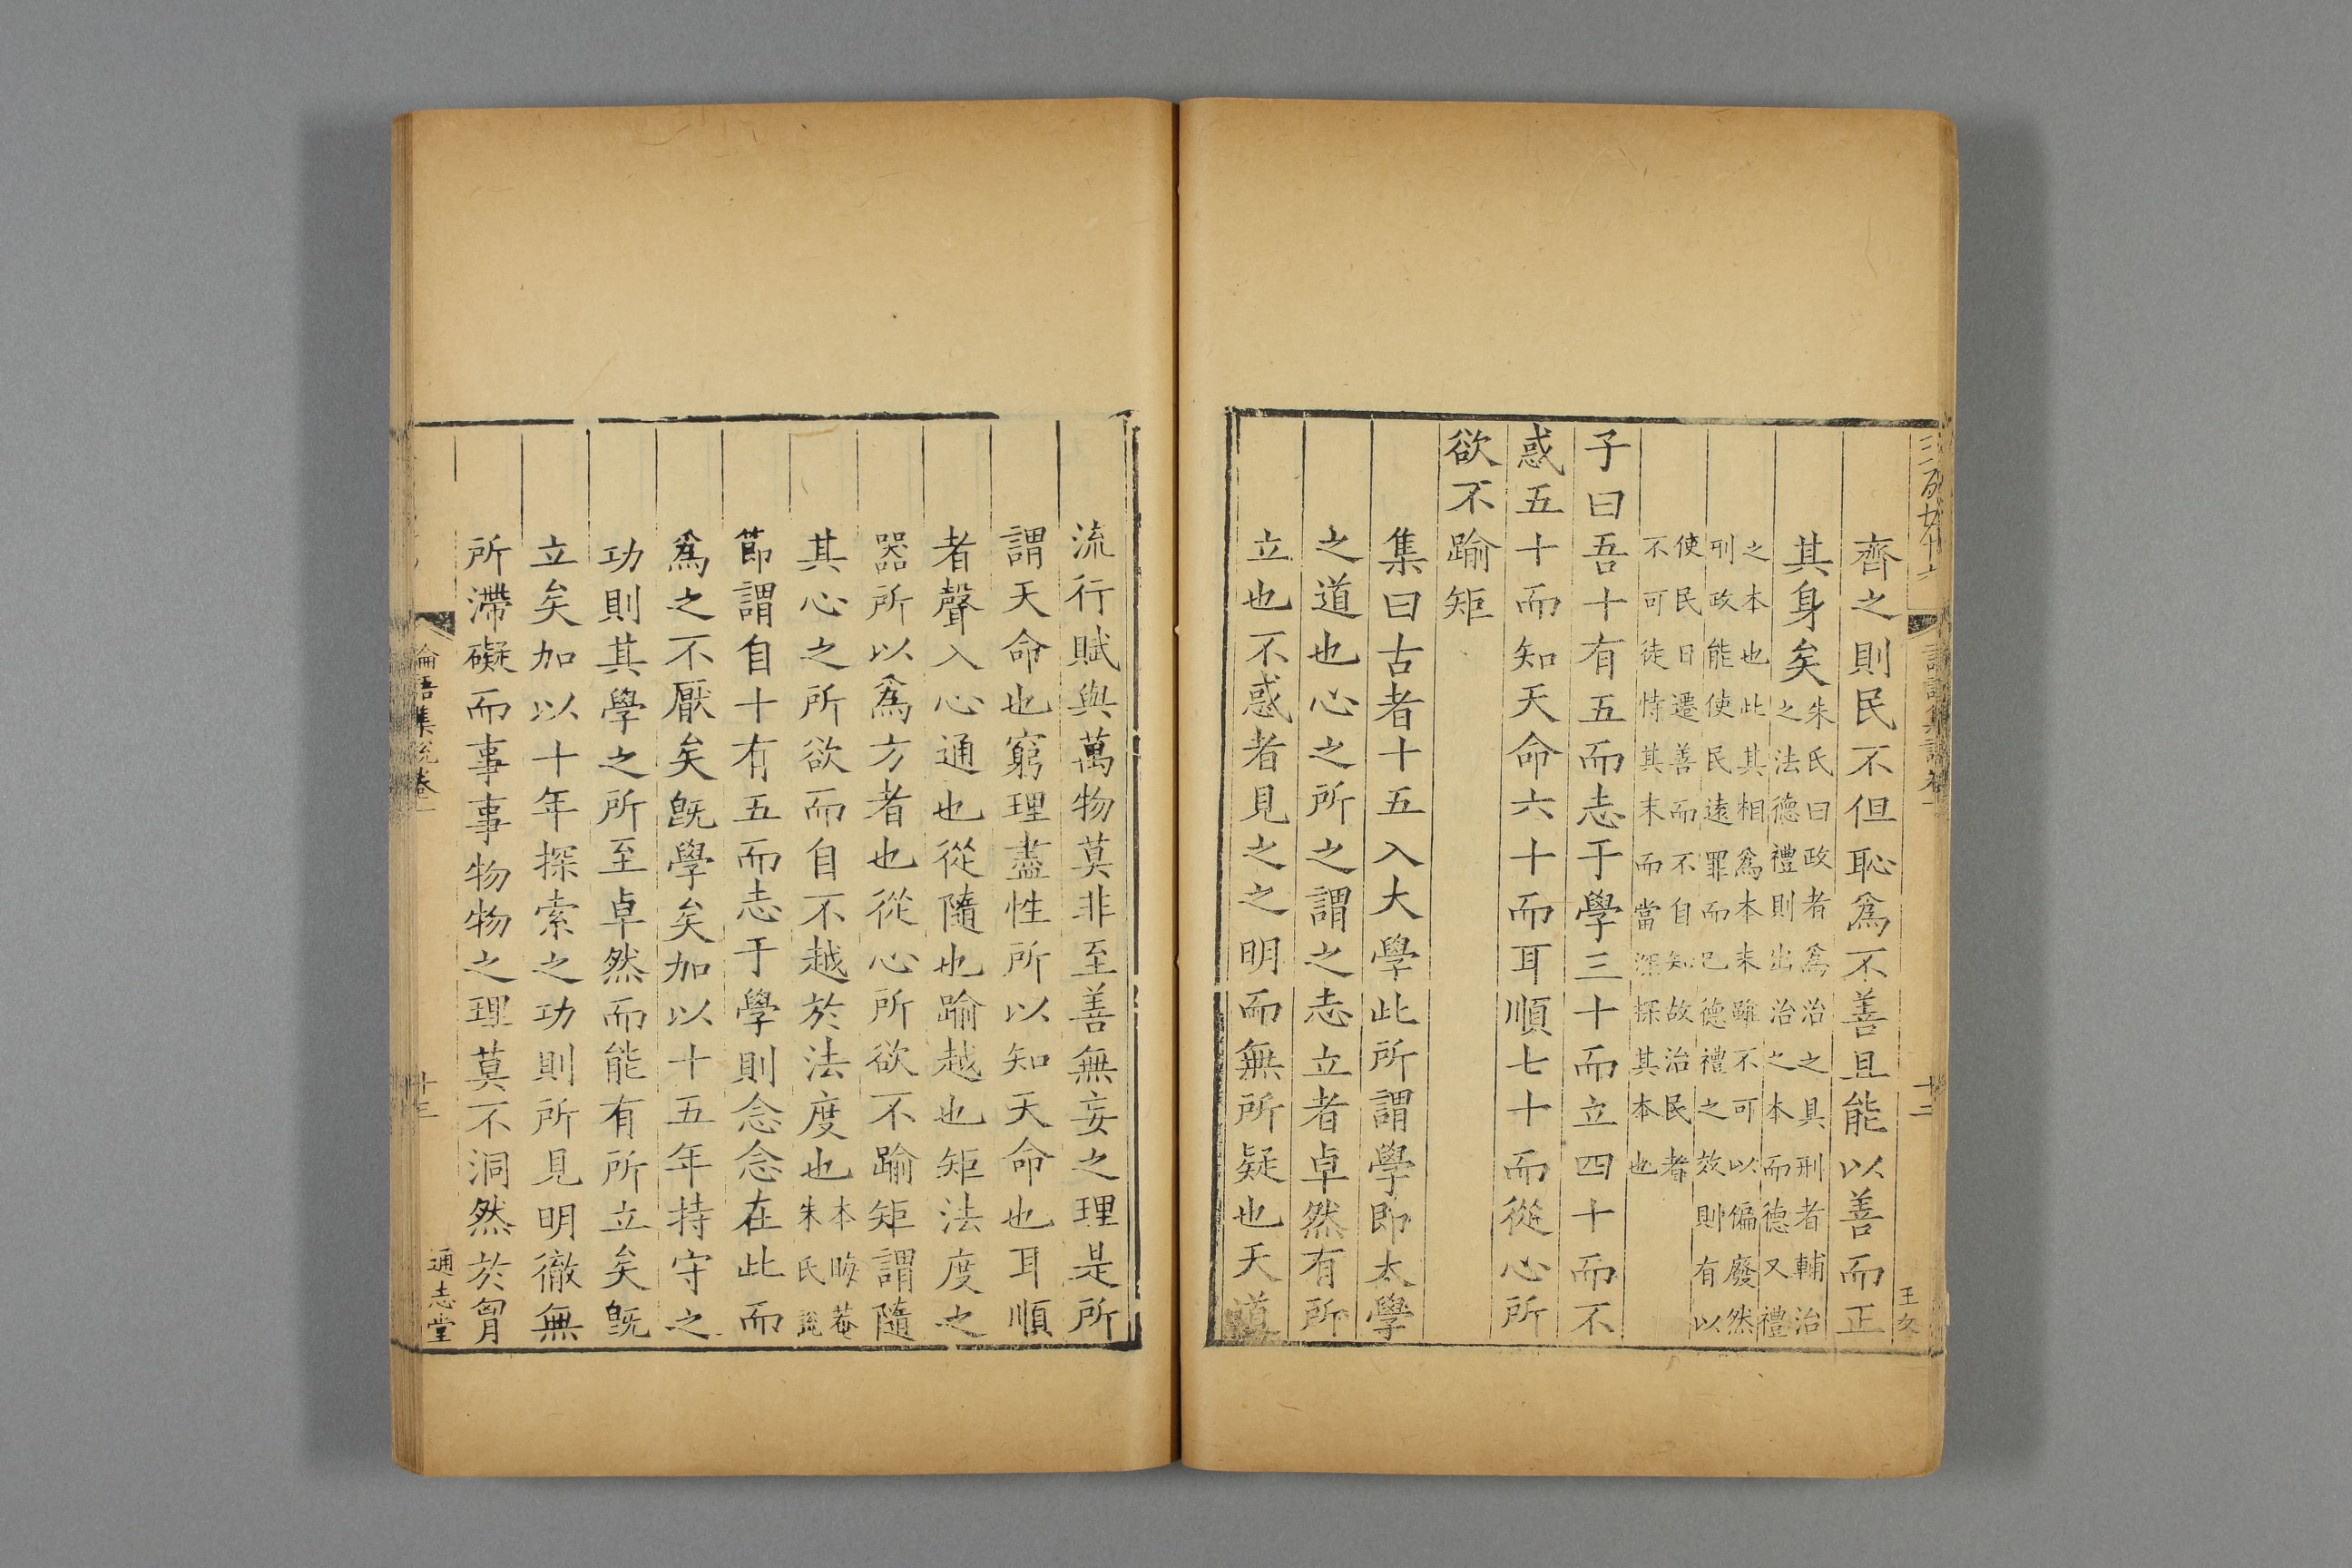 齊之則民不但恥爲不善且能以善而正
其身矣朱氏曰政者爲治之具刑者輔治
之法德禮則出治之本而德又禮
之本也此其相爲本末雖不可以偏廢然
刑政能使民遠罪而已德禮之效則有以
使民日遷善而不自知故治民者
不可徒恃其末而當深探其本也
子曰吾十有五而志于學三十而立四十而不
惑五十而知天命六十而耳順七十而從心所
欲不踰矩
集曰古者十五入大學此所謂學即太學
之道也心之所之謂之志立者卓然有所
立也不惑者見之之明而無所疑也天道
十二
流行賦與萬物莫非至善無妄之理是所
謂天命也窮理盡性所以知天命也耳順
者聲入心通也從隨也踰越也矩法度之
器所以爲方者也從心所欲不踰矩謂隨
其心之所欲而自不越於法度也本晦菴
朱氏說
節謂自十有五而志于學則念念在此而
爲之不厭矣旣學矣加以十五年持守之
功則其學之所至卓然而能有所立矣旣
立矣加以十年探索之功則所見明徹無
所滯礙而事事物物之理莫不洞然於胷
論語集說卷一
十三
通志堂